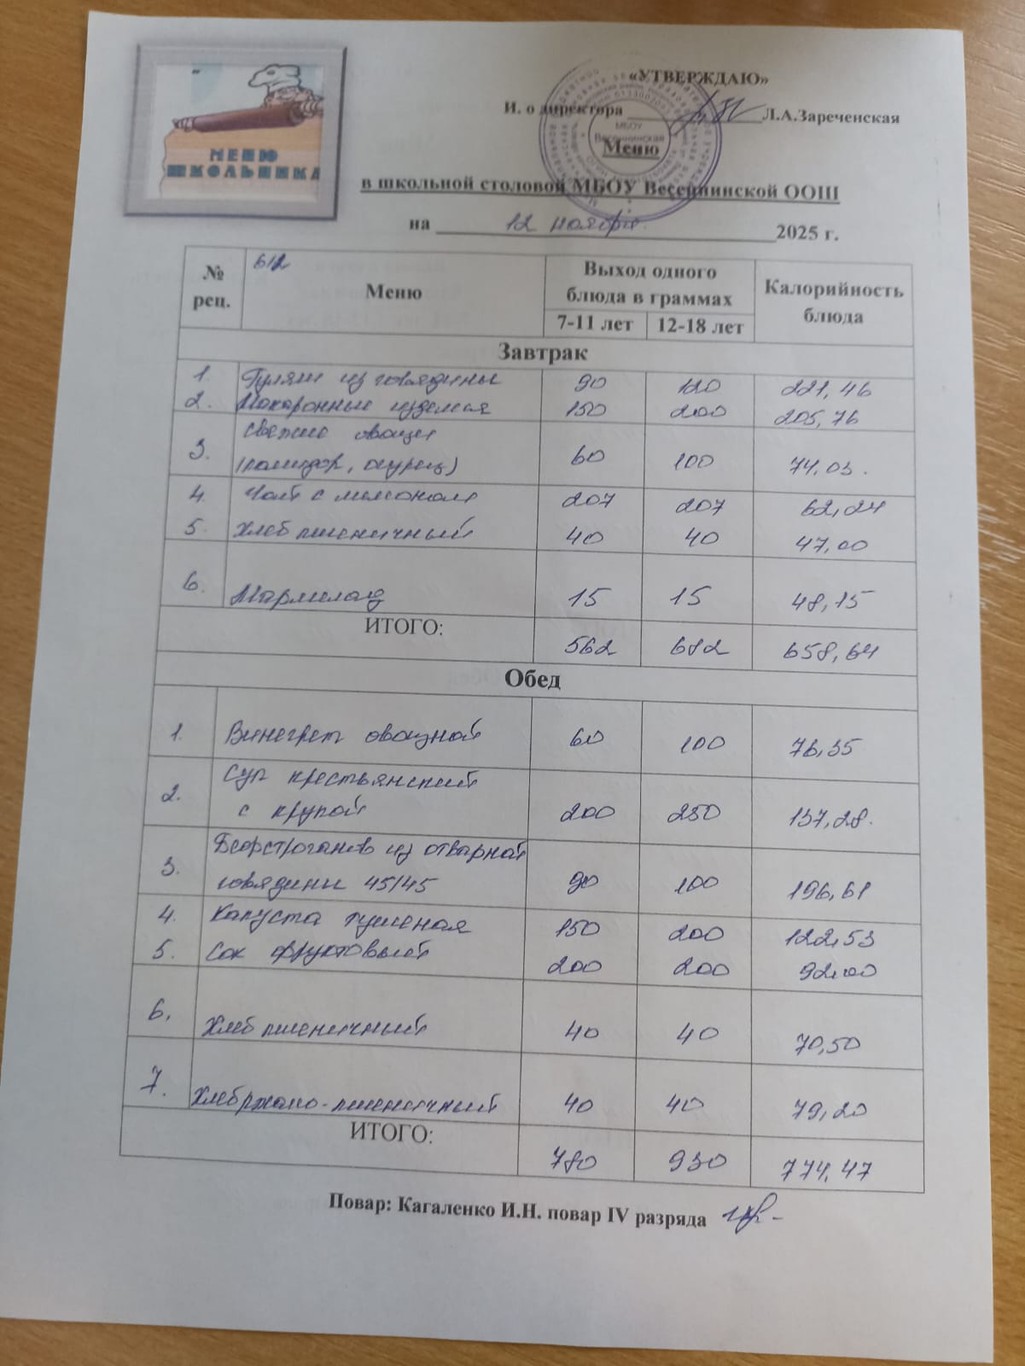 МЕНЮ
ШКОЛЬНИКА
«УТВЕРЖДАЮ»
И. о директора Л.А.Зареченская
Меню
в школьной столовой МБОУ Весеннинской ООШ
на 12 ноября 2025 г.
№ рец. Меню Выход одного блюда в граммах Калорийность блюда
7-11 лет 12-18 лет
Завтрак
1. Гуляш из говядины 90 120 221,46
2. Макаронные изделия 150 200 205,76
3. Свежие овощи
(помидор, огурец) 60 100 74,03.
4. Чай с лимоном 207 207 62,24
5. Хлеб пшеничный 40 40 47,00
6. Мармелад 15 15 48,15
ИТОГО: 562 682 658,64
Обед
1. Винегрет овощной 60 100 76,35
2. Суп крестьянский
с крупой 200 250 137,28.
3. Бефстроганов из отварной
говядины 45/45 90 100 196,61
4. Капуста тушеная 150 200 122,53
5. Сок фруктовый 200 200 92,00
6. Хлеб пшеничный 40 40 70,50
7. Хлеб ржано-пшеничный 40 40 79,20
ИТОГО: 780 930 774,47
Повар: Кагаленко И.Н. повар IV разряда